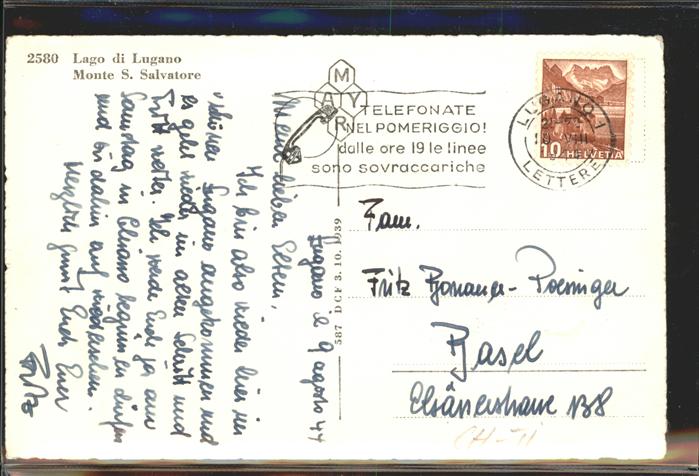 2580 Lago di Lugano
Monte S. Salvatore
M
A Y
R
TELEFONATE
NEL POMERIGGIO!
dalle ore 19 le linee
sono sovraccariche
LUGANO 1
LETTERE
10 HELVETIA
587 DCF 3.10.1939
Lugano il 9 agosto 44
Meine lieben Eltern,
Ich bin also wieder hier im
schönen Lugano angekommen und
es geht wieder im alten Schritt und
Tritt weiter. Ich werde Euch ja am
Samstag in Chiasso begrüssen dürfen
und bis dahin auf Wiedersehen.
Herzlich grüsst Euch Euer
Fritz
Fam.
Fritz Bonauer-Poeninger
Basel
Elsässerstrasse 138
CH-TI